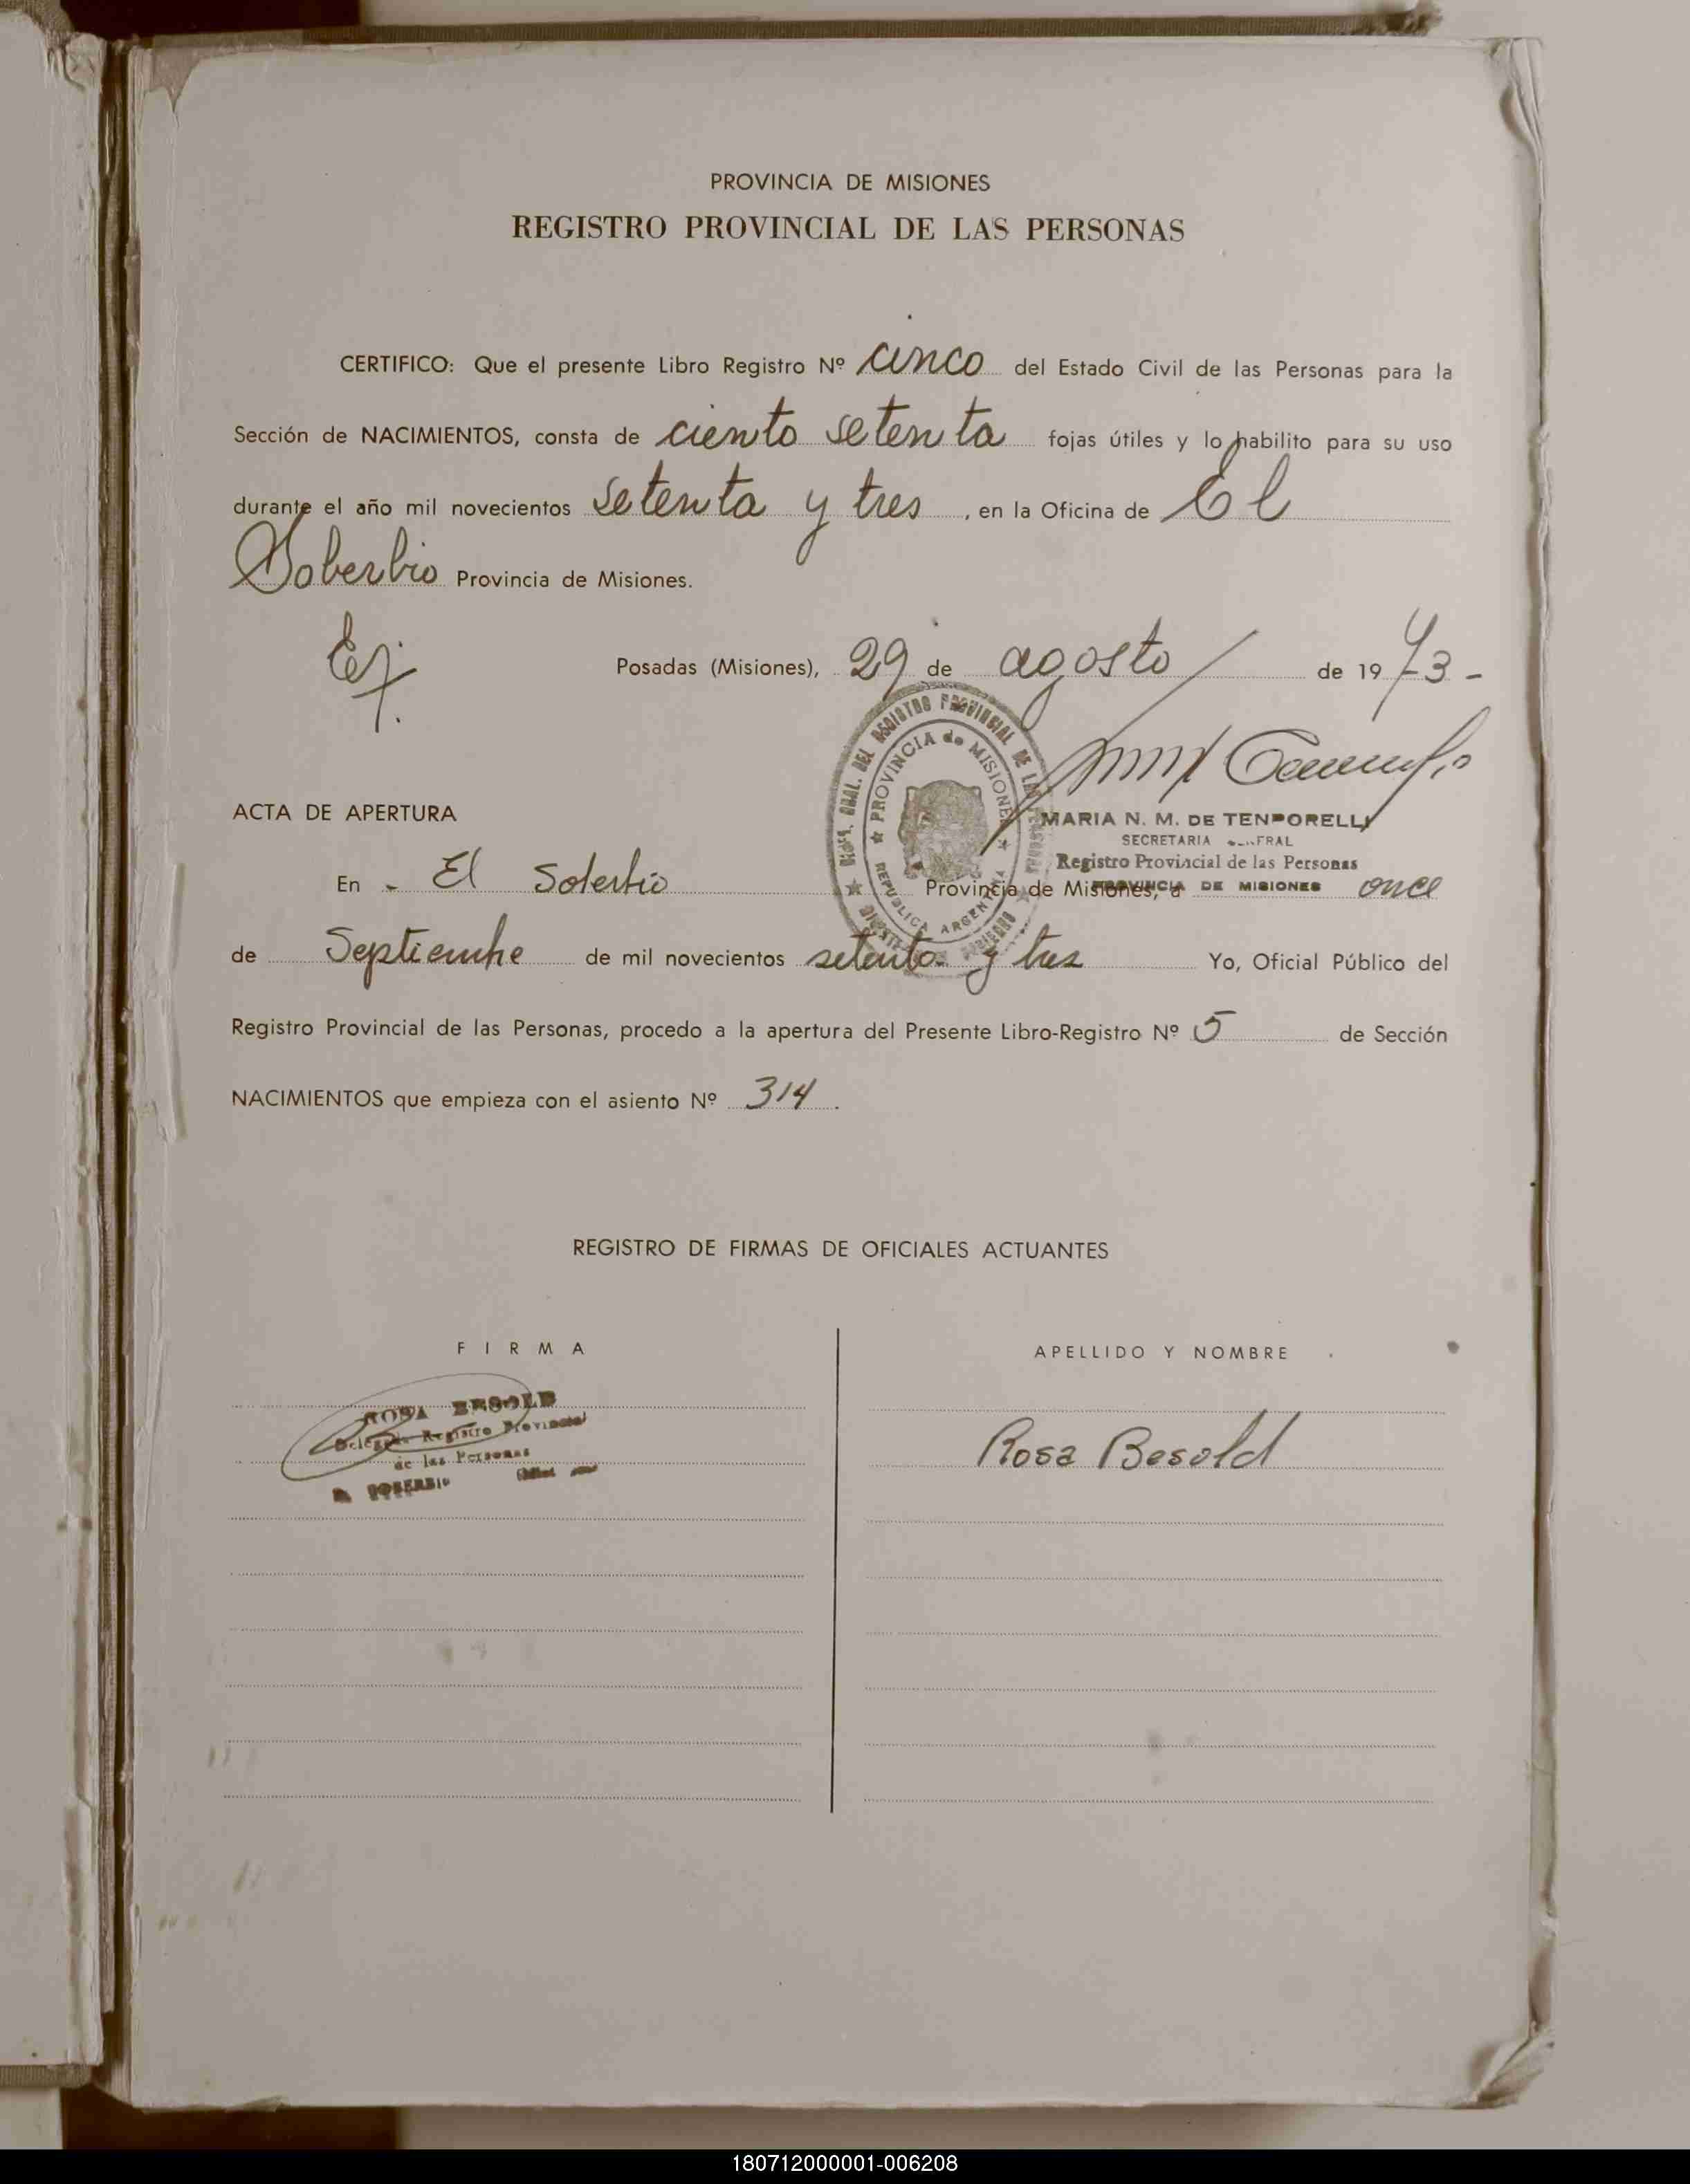 PROVINCIA DE MISIONES
REGISTRO PROVINCIAL DE LAS PERSONAS
CERTIFICO: Que el presente Libro Registro Nº cinco del Estado Civil de las Personas para la
Sección de NACIMIENTOS, consta de ciento setenta fojas útiles y lo habilito para su uso
durante el año mil novecientos setenta y tres, en la Oficina de El
Soberbio Provincia de Misiones.
Posadas (Misiones), 29 de agosto de 1973-
MARIA N. M. DE TENPORELLI
SECRETARIA
Registro Provincial de las Personas
PROVINCIA DE MISIONES
DEL REGISTRO PROVINCIAL DE LAS
★ PROVINCIA de MISIONES ★
REPUBLICA ARGENTINA
ACTA DE APERTURA
En - El Soberbio Provincia de Misiones, a once
de Septiembre de mil novecientos setenta y tres Yo, Oficial Público del
Registro Provincial de las Personas, procedo a la apertura del Presente Libro-Registro Nº 5 de Sección
NACIMIENTOS que empieza con el asiento Nº 314.
REGISTRO DE FIRMAS DE OFICIALES ACTUANTES
FIRMA
APELLIDO Y NOMBRE
ROSA BESOLD
Registro Provincial
de las Personas
SOBERBIO
Rosa Besold
180712000001-006208